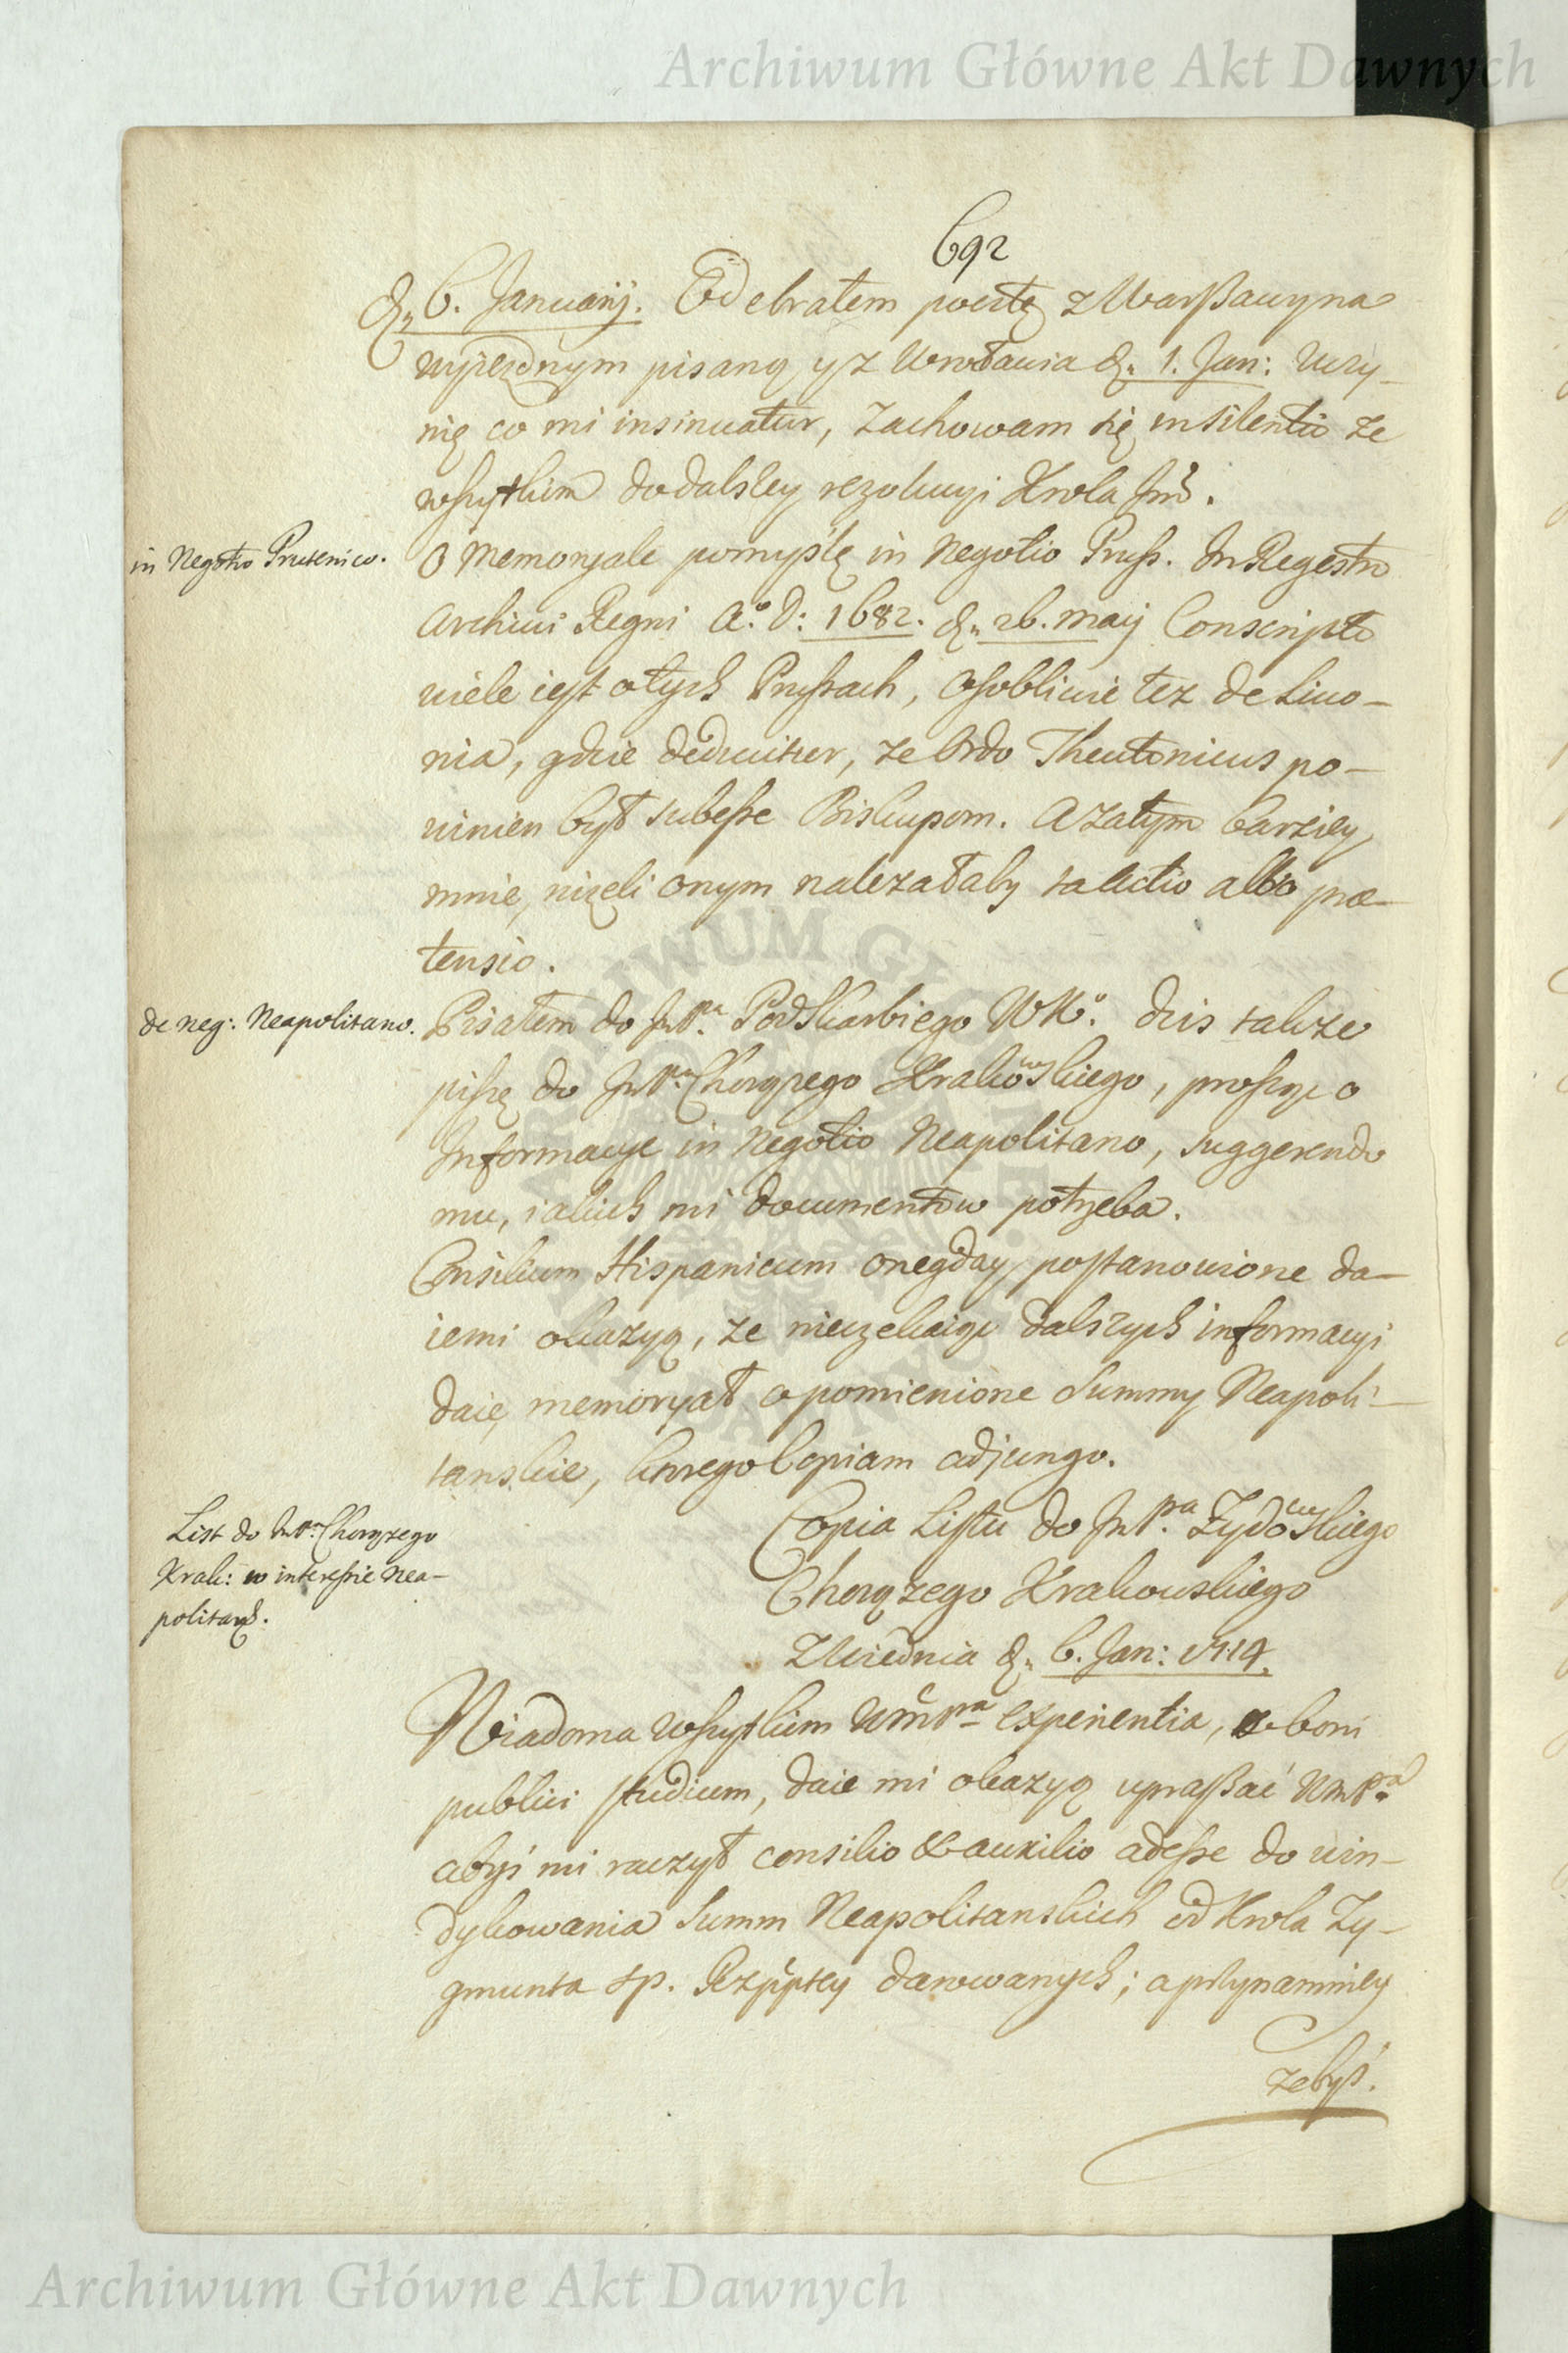 Archiwum Główne Akt Dawnych
692
d. 6. Januarij. Odebrałem pocztę z Warszawy na
wyiezdnym pisaną y z Wrocławia d. 1. Jan: Uczy-
nię co mi insinuatur, zachowam się in silentio ze
wszytkim do dalszey rezolucyi Krola Jmci.
in Negotio Prutenico.
O Memoryale pomyślę in Negotio Pruss. In Regestro
Archivi Regni A.o D: 1682. d. 26. Maij Conscripto
wiele iest o tych Prussach, osobliwie tez de Livo-
nia, gdzie deducitur, ze Ordo Theutonicus po-
winien był subesse Biskupom. A zatym barziey
mnie, nizeli onym nalezałaby ta actio albo præ-
tensio.
de neg: Neapolitano.
Pisałem do JmPa. Podskarbiego WKo. dzis takze
piszę do JmPa. Chorązego Krakowskiego, prosząc o
Informacyę in Negotio Neapolitano, suggerendo
mu, iakich mi documentow potrzeba.
Consilium Hispanicum onegday postanowione da-
ie mi okazyą, ze nieczekaiąc dalszych informacyi
daię memoryał o pomienione Summy Neapoli-
tanskie, ktorego Copiam adjungo.
List do JmPa. Chorązego
Krak: w interessie Nea-
politań.
Copia Listu do JmPa. Zydowskiego
Chorązego Krakowskiego
z Wiednia d. 6. Jan: 1714.
Wiadoma wszytkim WmPa experientia, boni
publici studium, daie mi okazyą upraszać WmPa.
abyś mi raczył consilio & auxilio adesse do win-
dykowania Summ Neapolitanskich od Krola Zy-
gmunta sp. Rzpptey darowanych; a przynamniey
zebyś.
ARCHIWUM GŁÓWNE AKT DAWNYCH
Archiwum Główne Akt Dawnych